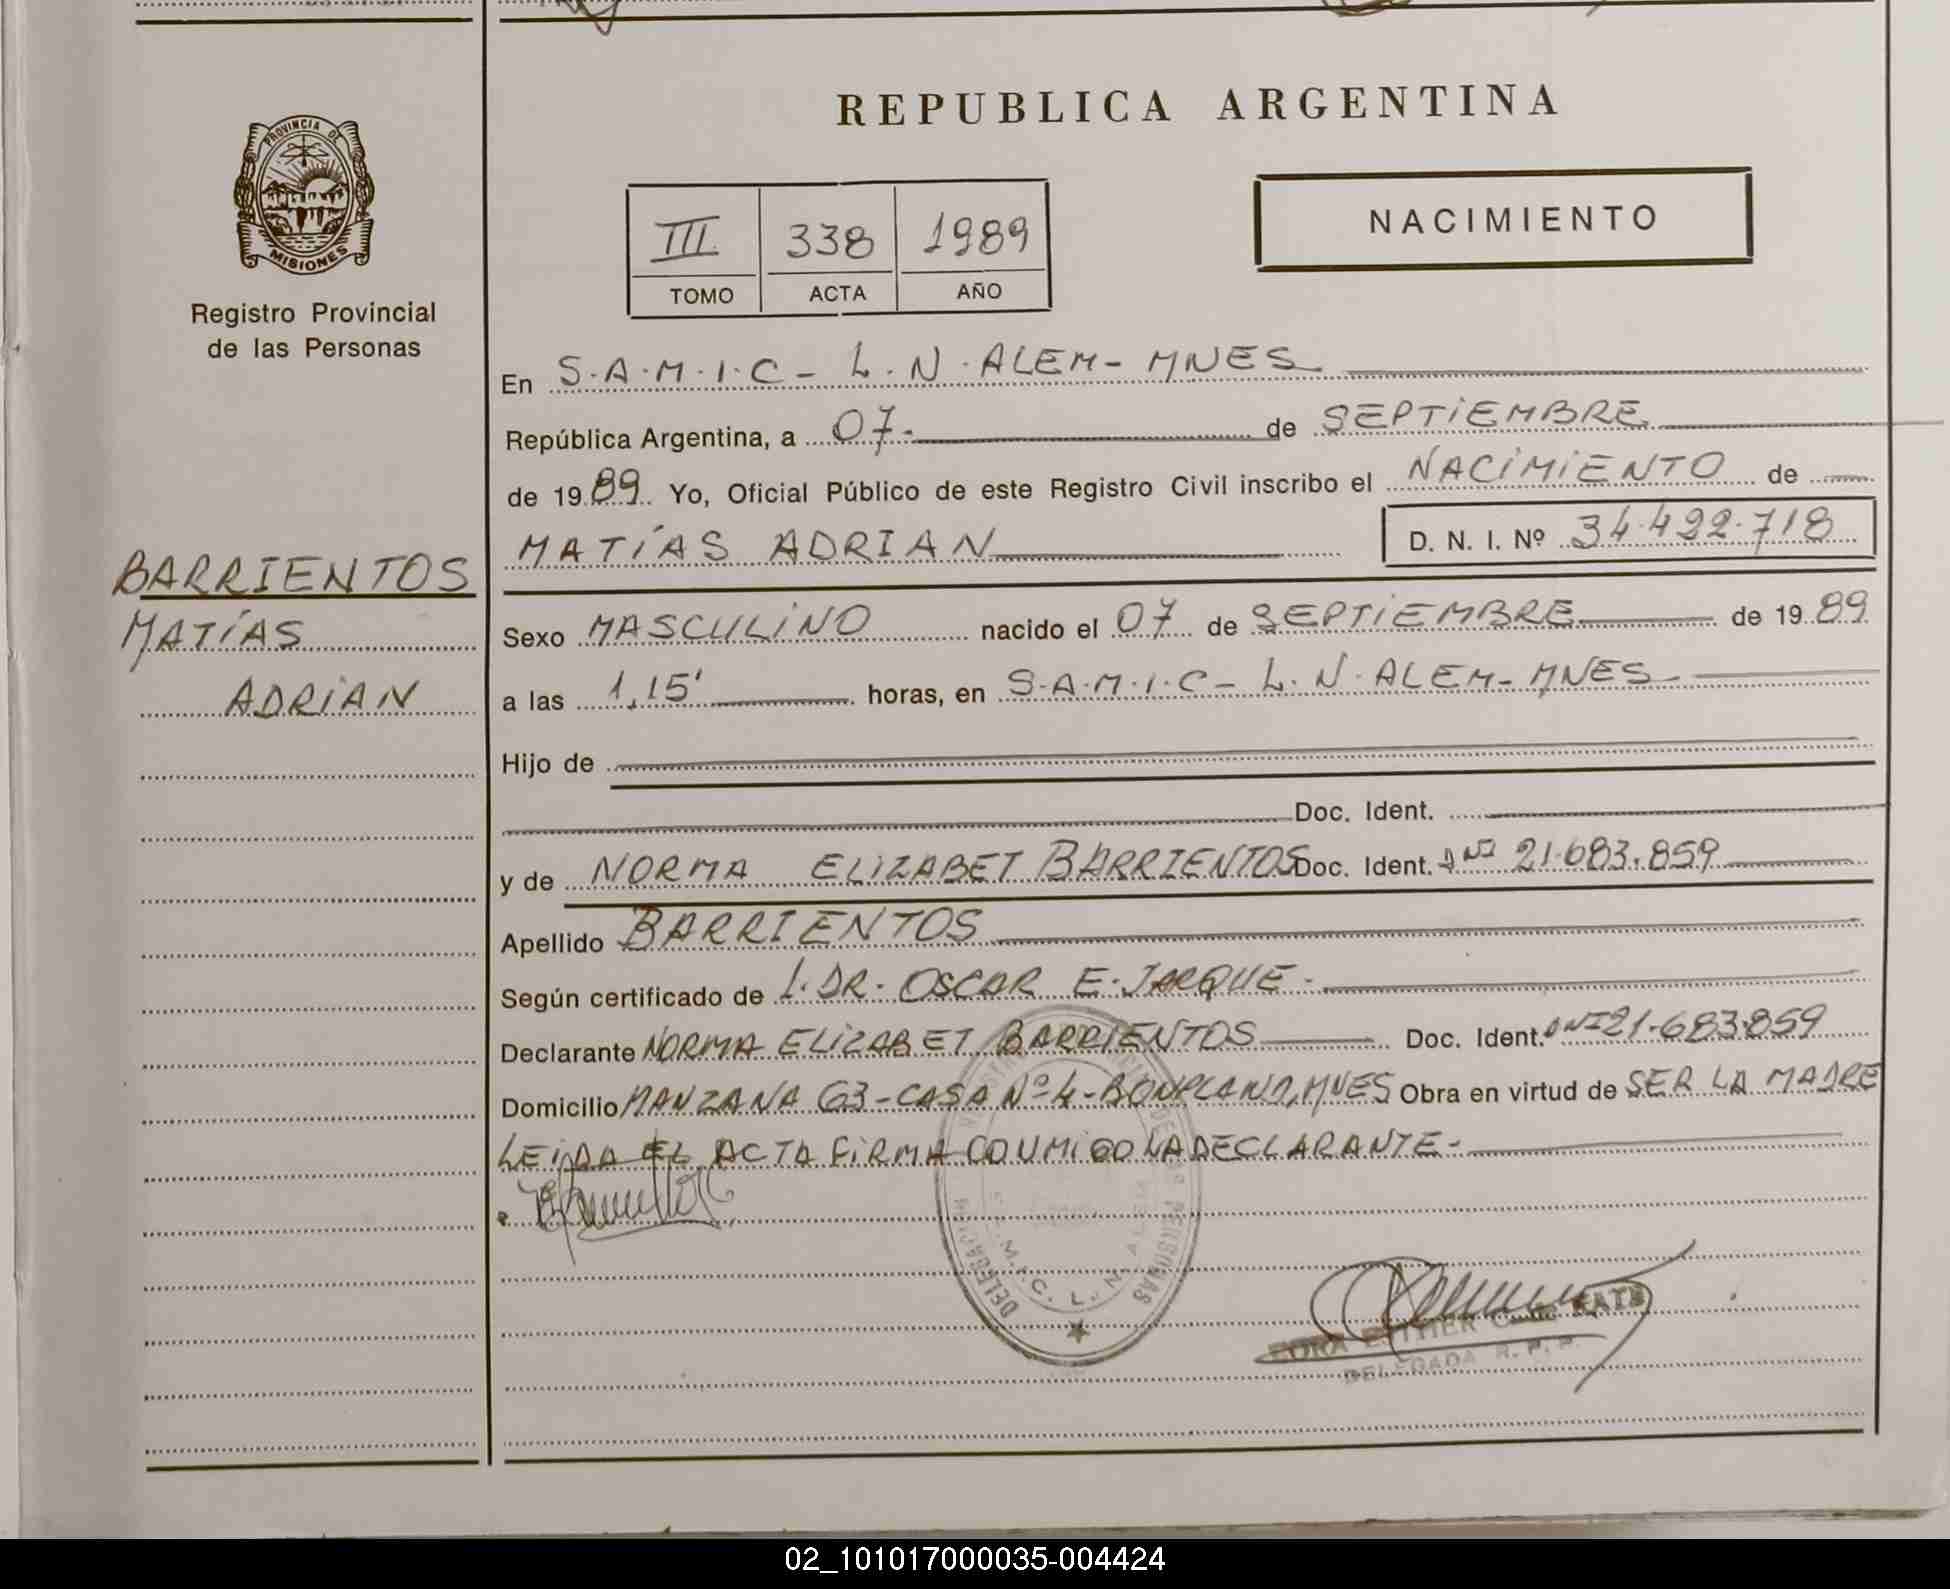 REPUBLICA ARGENTINA
PROVINCIA DE
MISIONES
Registro Provincial
de las Personas
NACIMIENTO
III 338 1989
TOMO ACTA AÑO
En S.A.M.I.C - L.N.ALEM - MNES
República Argentina, a 07.- de SEPTIEMBRE
de 1989 Yo, Oficial Público de este Registro Civil inscribo el NACIMIENTO de
MATÍAS ADRIAN D. N. I. Nº 34.422.718
BARRIENTOS
MATÍAS
ADRIAN
Sexo MASCULINO nacido el 07 de SEPTIEMBRE de 1989
a las 1,15' horas, en S.A.M.I.C - L.N.ALEM - MNES
Hijo de
Doc. Ident.
y de NORMA ELIZABET BARRIENTOS Doc. Ident. DNI 21.683.859
Apellido BARRIENTOS
Según certificado de DR. OSCAR E. JARQUE.-
Declarante NORMA ELIZABET BARRIENTOS Doc. Ident. DNI 21.683.859
Domicilio MANZANA G3 - CASA Nº 4 - BONPLAND, MNES Obra en virtud de SER LA MADRE
LEIDA EL ACTA FIRMA CONMIGO LA DECLARANTE.-
PERSONAS
S.A.M.I.C. L. N. ALEM
ESTHER
DELEGADA R. P. P.
02_101017000035-004424